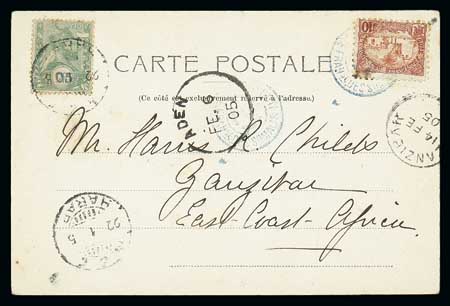 CARTE POSTALE
(Ce côté est exclusivement réservé à l'adresse.)
ADEN
FE 6
05
Mr. Harris K. Childs
Zanzibar
East-Coast-Africa
ZANZIBAR
14 FE
05
HARAR
22
1
5
10